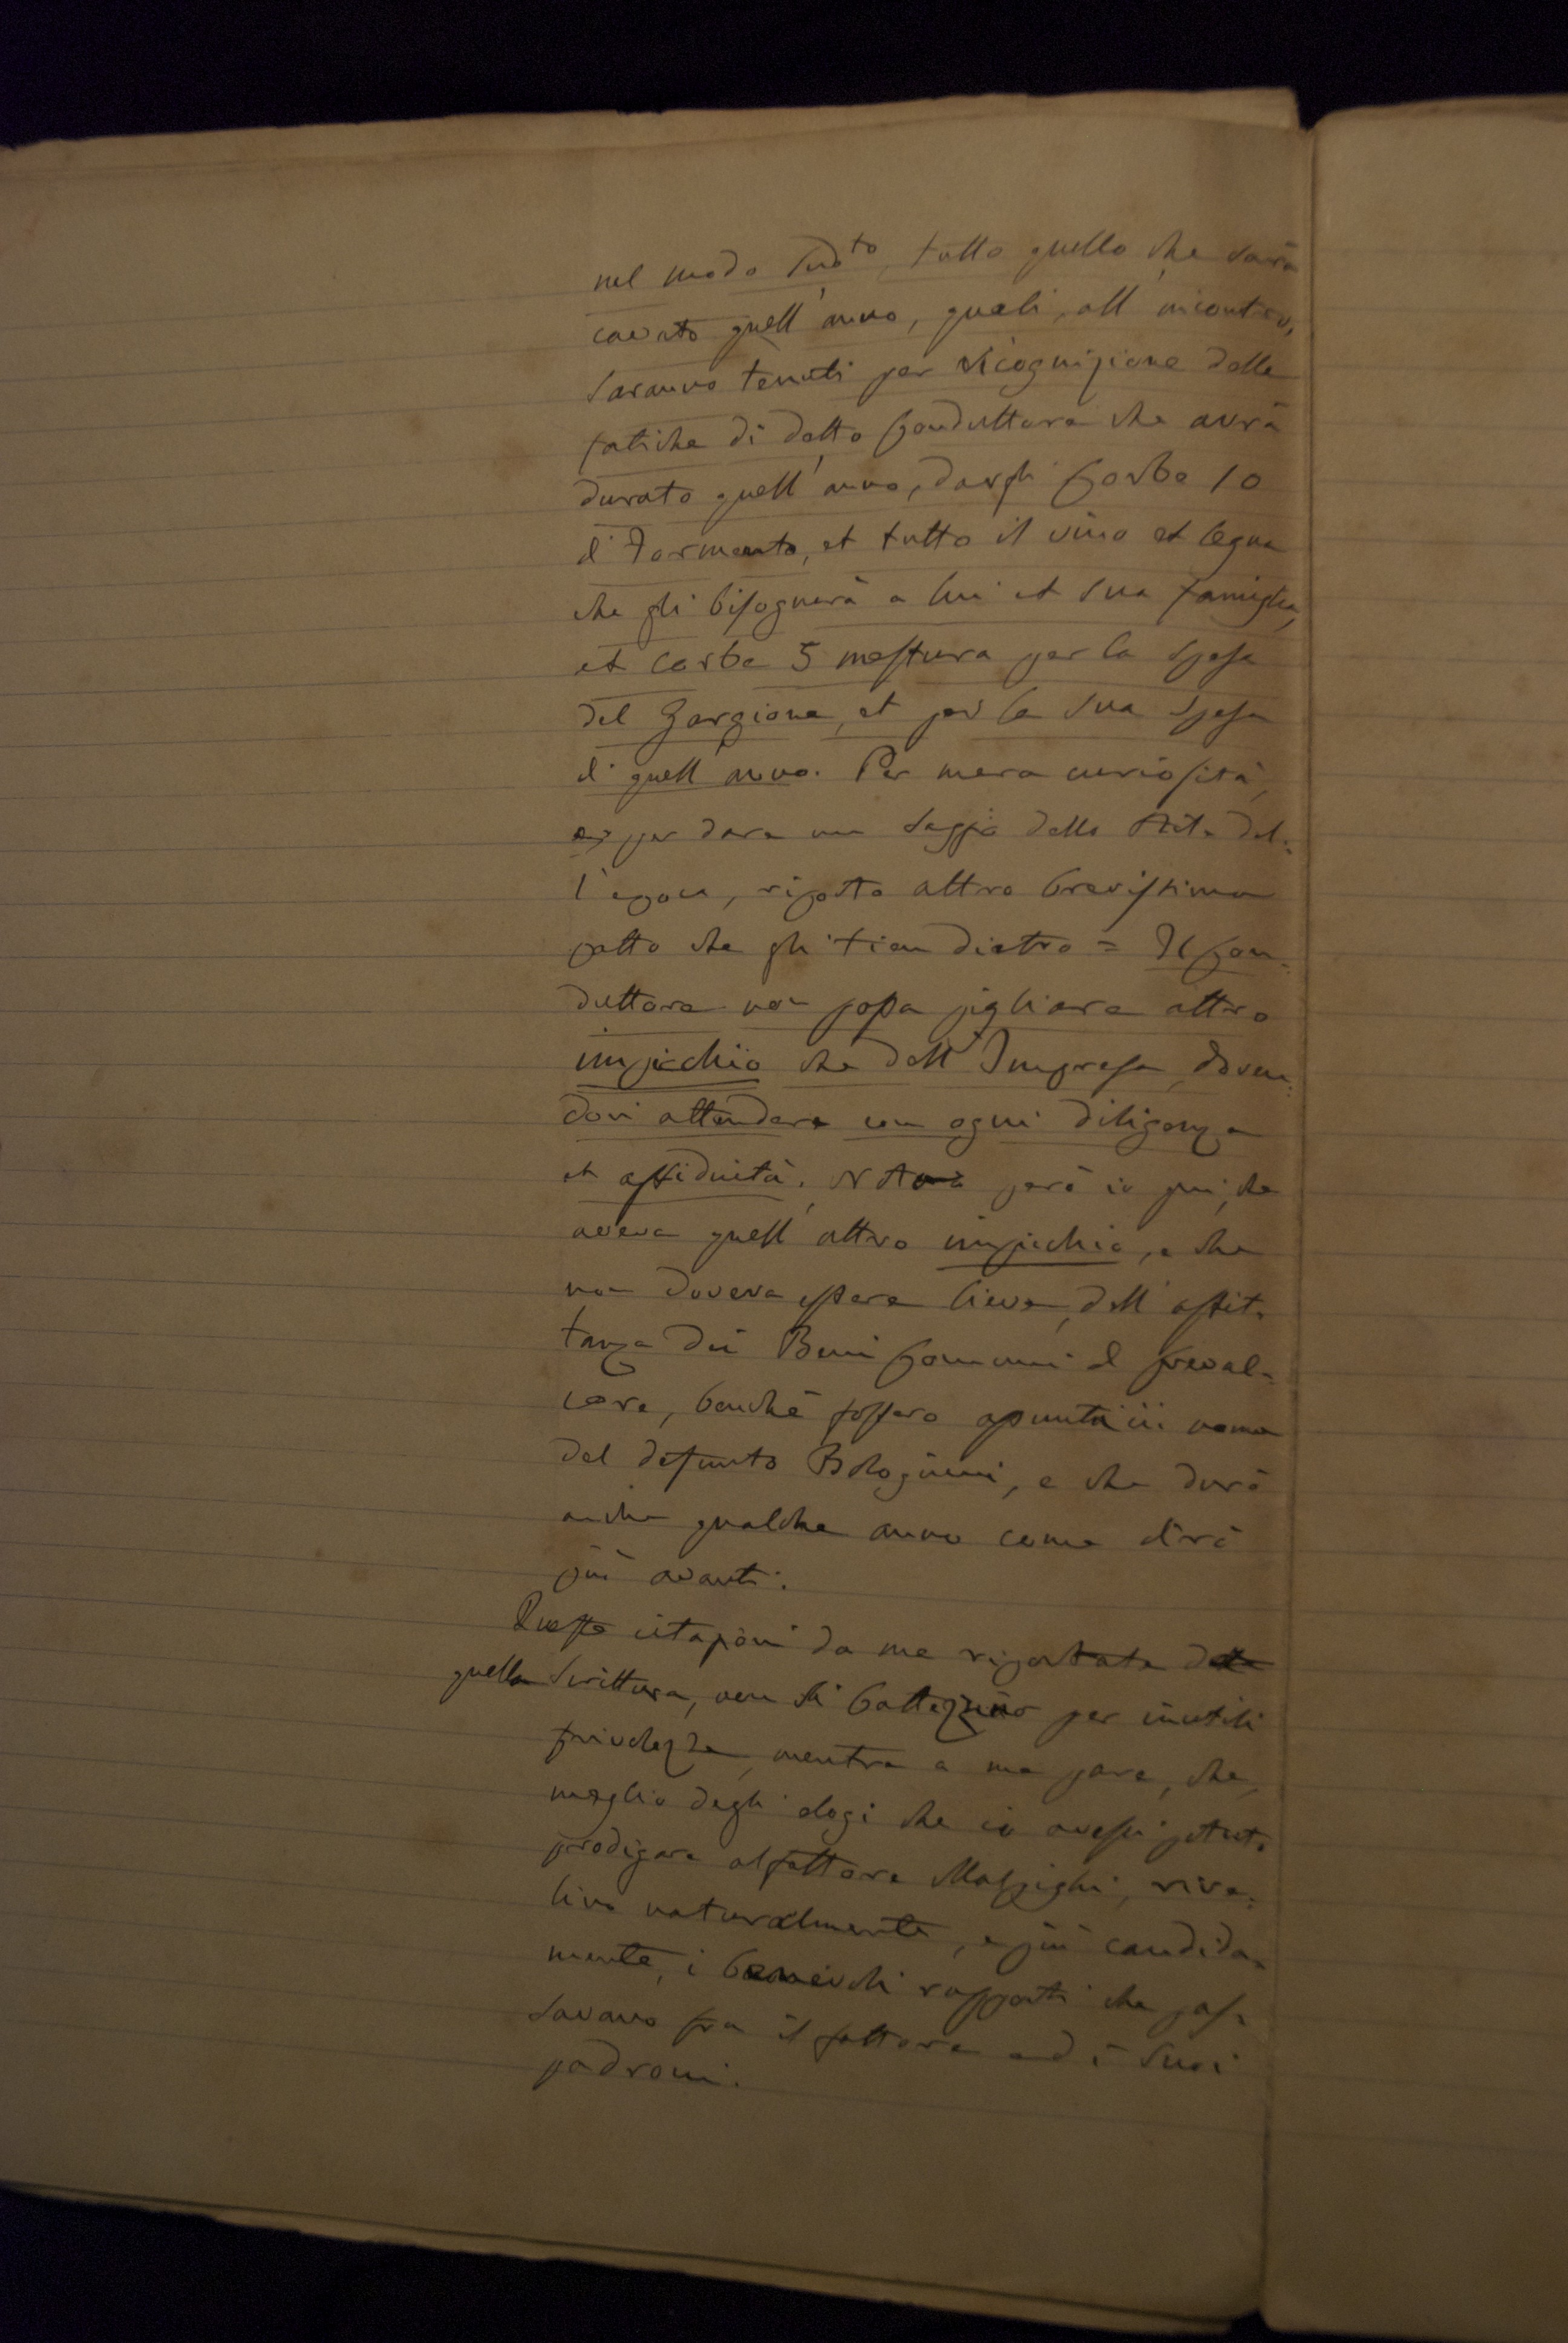 nel modo sudto, tutto quello che sarà
cavato quell'anno, quali, all'incontro,
saranno tenuti per ricognizione delle
fatiche di detto Conduttore che avrà
durato quell'anno, dargli Corbe 10
di Formento, et tutto il vino et legna
che gli bisognerà a lui et sua famiglia,
et corbe 5 mestura per la spesa
del Garzione, et per la sua spesa
di quell'anno. Per mera curiosità,
e per dare un saggio dello stile del=
l'epoca, riporto altro brevissimo
patto che gli tien dietro = Il Con=
duttore non possa pigliare altro
impichio che dell'Impresa, doven=
dovi attendere con ogni diligenza
et assiduità. Noto però io qui, che
aveva quell'altro impichio, e che
non doveva essere lieve, dell'affit=
tanza dei Beni Comuni di Creval=
core, benchè fossero assunti in nome
del defunto Bolognini, e che durò
anche qualche anno come dirò
più avanti.
Queste citazioni da me riportate da
quella Scrittura, non si battezzino per inutili
frivolezze, mentre a me pare, che,
meglio degli elogi che io avessi potuto
prodigare al fattore Malpighi, rive=
lino naturalmente, e più candida=
mente, i benevoli rapporti che pas=
savano fra il fattore ed i suoi
padroni.